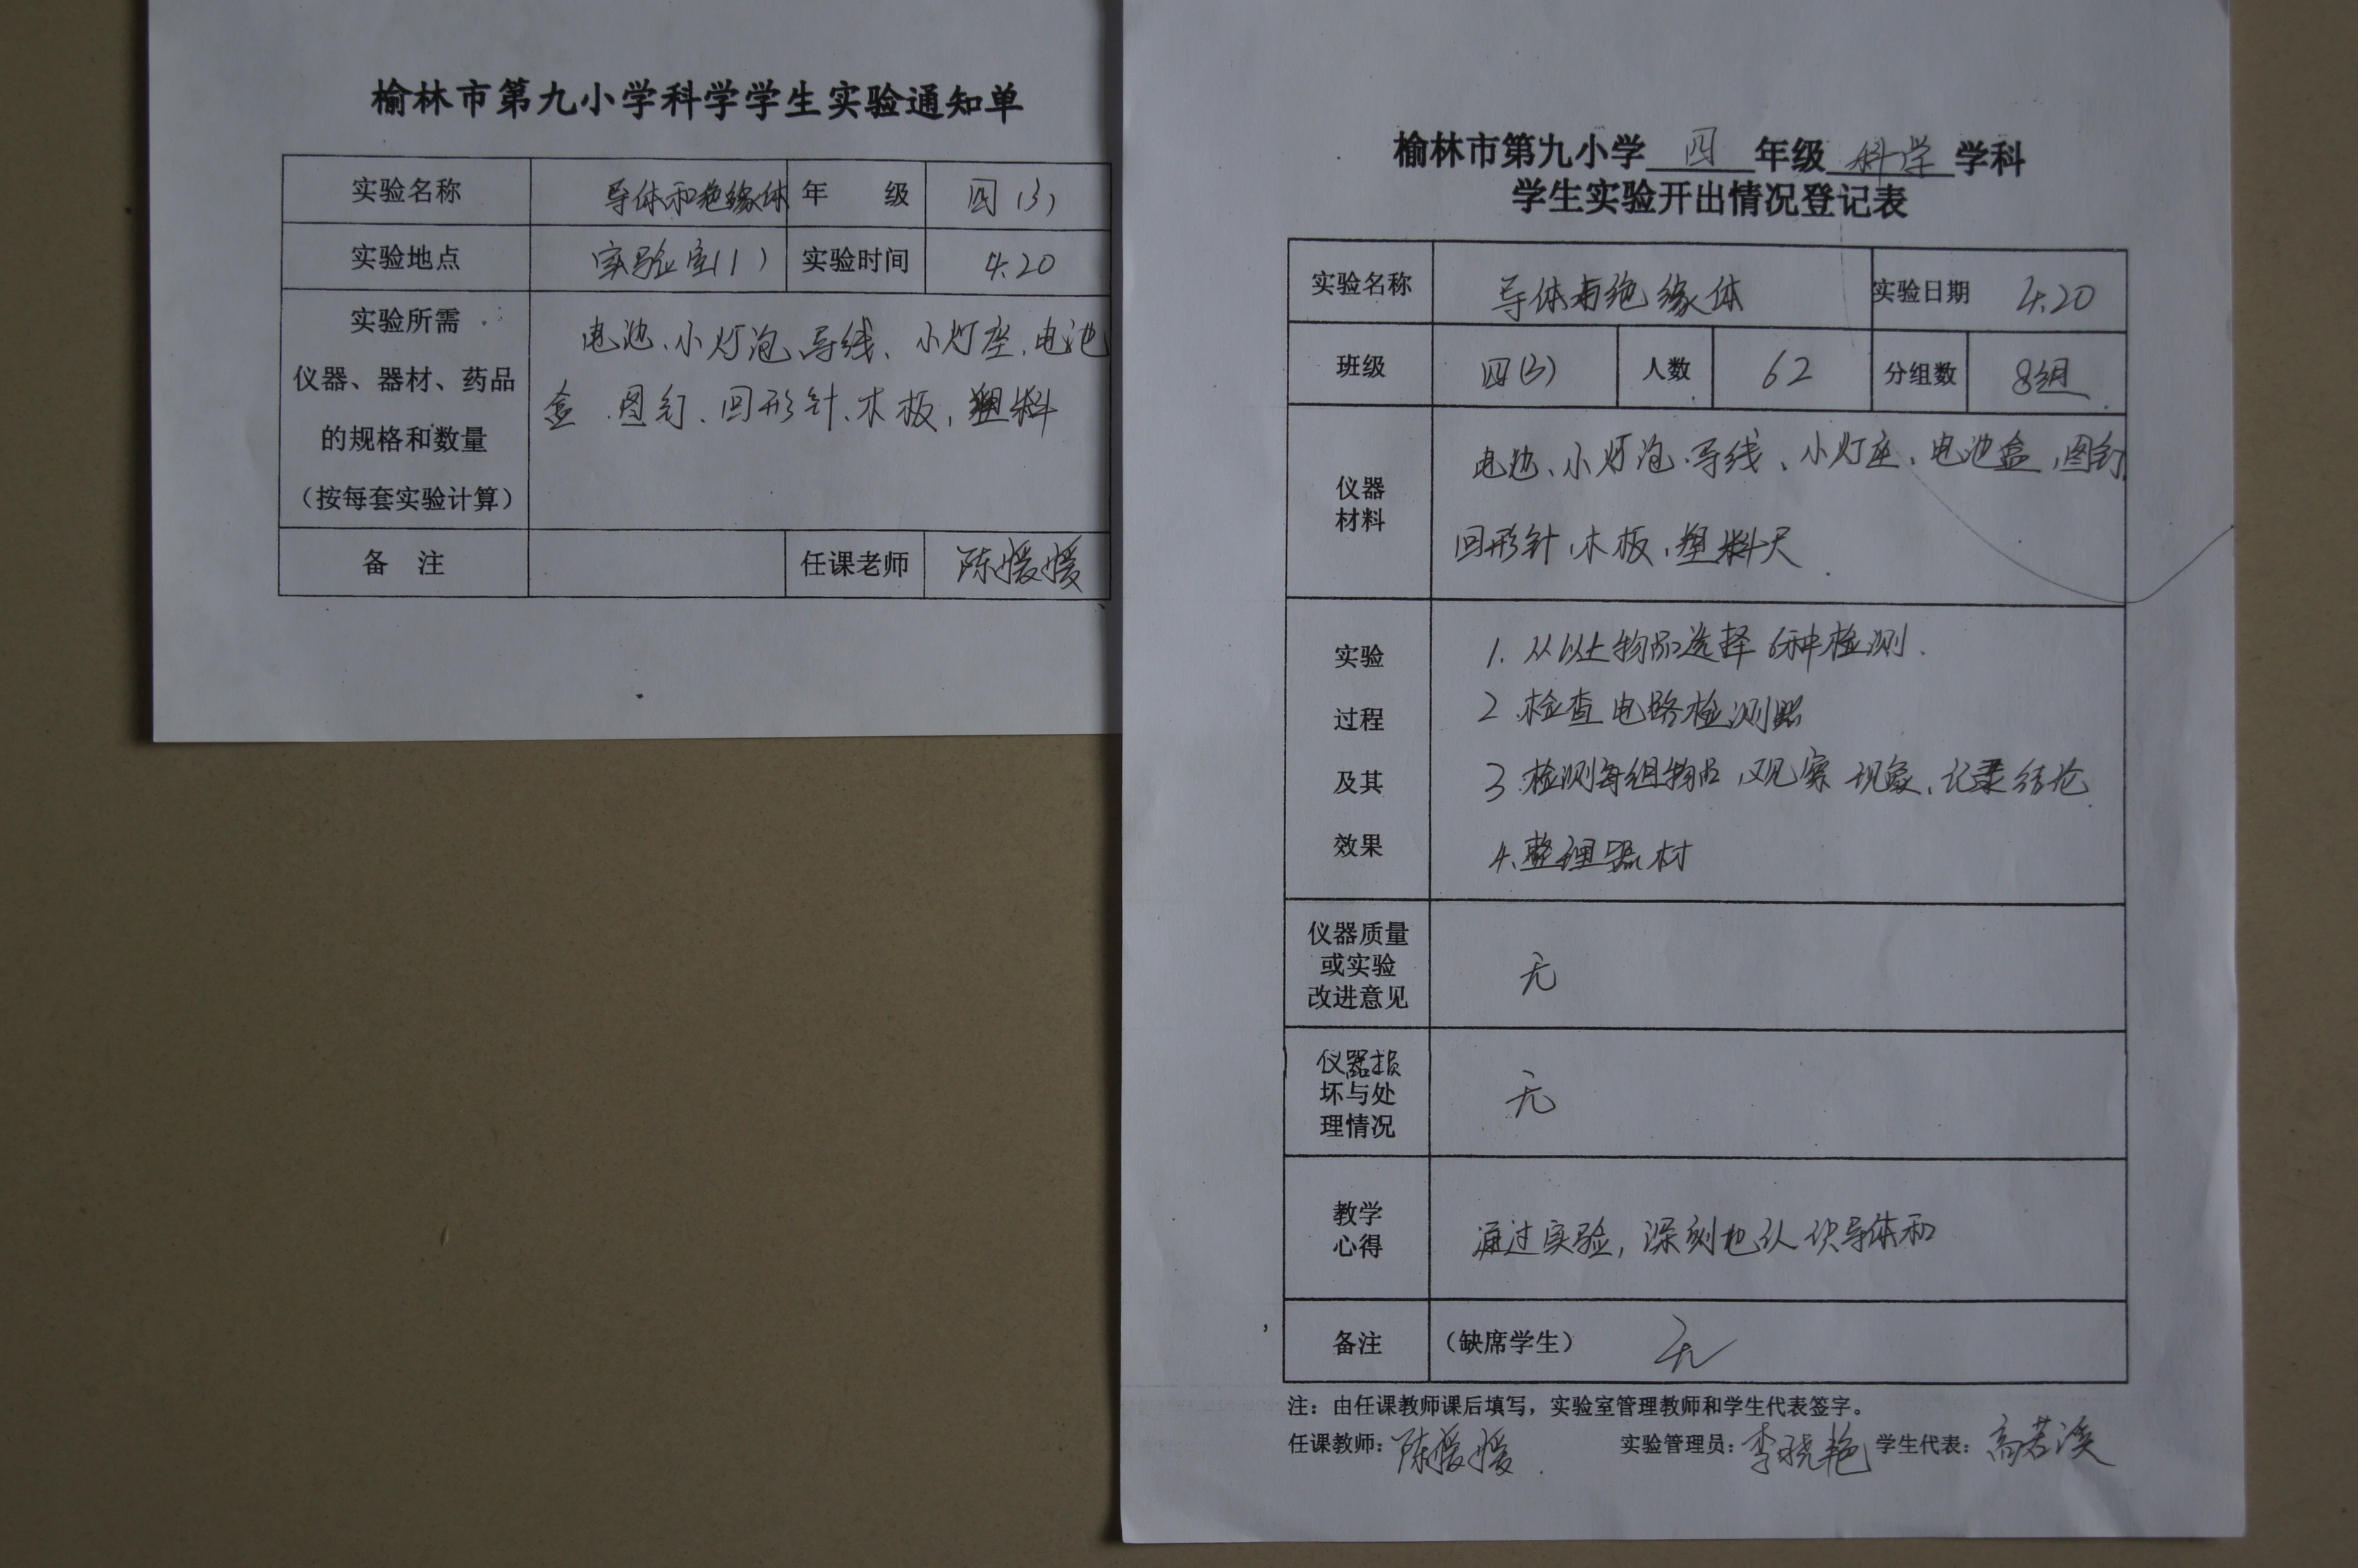 榆林市第九小学科学学生实验通知单
实验名称 导体和绝缘体 年 级 四(3)
实验地点 实验室(1) 实验时间 4.20
实验所需
仪器、器材、药品
的规格和数量
（按每套实验计算）
电池、小灯泡、导线、小灯座、电池
盒、图钉、回形针、木板、塑料
备 注 任课老师 陈媛媛
榆林市第九小学 四 年级 科学 学科
学生实验开出情况登记表
实验名称 导体与绝缘体 实验日期 4.20
班级 四(3) 人数 62 分组数 8组
仪器
材料
电池、小灯泡、导线、小灯座、电池盒、图钉、
回形针、木板、塑料尺
实验
过程
及其
效果
1. 从以上物品选择6种检测.
2. 检查电路检测器
3. 检测每组物品,观察现象、记录结论.
4. 整理器材
仪器质量
或实验
改进意见
无
仪器损
坏与处
理情况
无
教学
心得
通过实验，深刻地认识导体和
备注 （缺席学生） 无
注：由任课教师课后填写，实验室管理教师和学生代表签字。
任课教师：陈媛媛 实验管理员：李晓艳 学生代表：高若溪